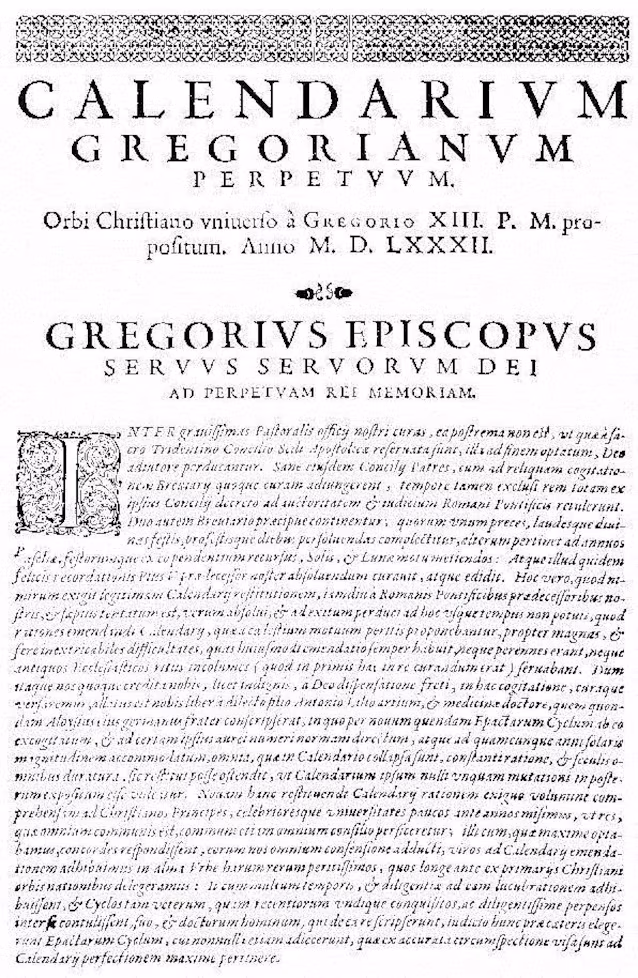 CALENDARIVM
GREGORIANVM
PERPETVVM.
Orbi Chriſtiano vniuerſo à GREGORIO XIII. P. M. pro-
poſitum. Anno M. D. LXXXII.
GREGORIVS EPISCOPVS
SERVVS SERVORVM DEI
AD PERPETVAM REI MEMORIAM.
INTER grauiſſimas Paſtoralis officij noſtri curas, ea poſtrema non eſt, vt quæ à ſa-
cro Tridentino Concilio Sedi Apoſtolicæ reſeruata ſunt, illa ad finem optatum, Deo
adiutore perducantur. Sane eiuſdem Concilij Patres, cum ad reliquam cogitatio-
nem Breuiarij quoque curam adiungerent, tempore tamen excluſi rem totam ex
ipſius Concilij decreto ad auctoritatem & iudicium Romani Pontificis retulerunt.
Duo autem Breuiario præcipue continentur, quorum vnum preces, laudesque diui-
nas feſtis, profeſtisque diebus perſoluendas complectitur, alterum pertinet ad annuos
Paſchæ, feſtorumque ex eo pendentium recurſus, Solis, & Lunæ motu metiendos: Atque illud quidem
felicis recordationis Pius V. prædeceſſor noſter abſoluendum curauit, atque edidit. Hoc vero, quod ni-
mirum exigit legitimam Calendarij reſtitutionem, iamdiu à Romanis Pontificibus prædeceſſoribus no-
ſtris, & ſæpius tentatum eſt, verum abſolui, & ad exitum perduci ad hoc vſque tempus non potuit, quod
rationes emendandi Calendarij, quæ à cæleſtium motuum peritis proponebantur, propter magnas, &
fere inextricabiles difficultates, quas huiuſmodi emendatio ſemper habuit, neque perennes erant, neque
antiquos Eccleſiaſticos ritus incolumes (quod in primis hac in re curandum erat) ſeruabant. Dum
itaque nos quoque credita nobis, licet indignis, à Deo diſpenſatione freti, in hac cogitatione, curaque
verſaremur, allatus eſt nobis liber à dilecto filio Antonio Lilio artium, & medicinæ doctore, quem quon-
dam Aloyſius eius germanus frater conſcripſerat, in quo per nouum quendam Epactarum Cyclum ab eo
excogitatum, & ad certam ipſius aurei numeri normam directum, atque ad quamcunque anni ſolaris
magnitudinem accommodatum, omnia, quæ in Calendario collapſa ſunt, conſtanti ratione, & ſæculis o-
mnibus duratura, ſic reſtitui poſſe oſtendit, vt Calendarium ipſum nulli vnquam mutationi in poſte-
rum expoſitum eſſe videatur. Nouam hanc reſtituendi Calendarij rationem exiguo volumine com-
prehenſam ad Chriſtianos Principes, celebrioresque vniuerſitates paucos ante annos miſimus, vt res,
quæ omnium communis eſt, communi etiam omnium conſilio perficeretur; illi cum, quæ maxime opta-
bamus, concordes reſpondiſſent, eorum nos omnium conſenſione adducti, viros ad Calendarij emenda-
tionem adhibuimus in alma Vrbe harum rerum peritiſſimos, quos longe ante ex primarijs Chriſtiani
orbis nationibus delegeramus: Ii cum multum temporis, & diligentiæ ad eam lucubrationem adhi-
buiſſent, & Cyclos tam veterum, quam recentiorum vndique conquiſitos, ac diligentiſſime perpenſos
inter ſe contuliſſent, ſuo, & doctorum hominum, qui de ea re ſcripſerunt, iudicio hunc præ cæteris elege-
runt Epactarum Cyclum, cui nonnulla etiam adiecerunt, quæ ex accurata circumſpectione viſa ſunt ad
Calendarij perfectionem maxime pertinere.